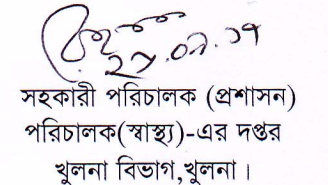 ২৭.০৯.১৭
সহকারী পরিচালক (প্রশাসন)
পরিচালক(স্বাস্থ্য)-এর দপ্তর
খুলনা বিভাগ,খুলনা।